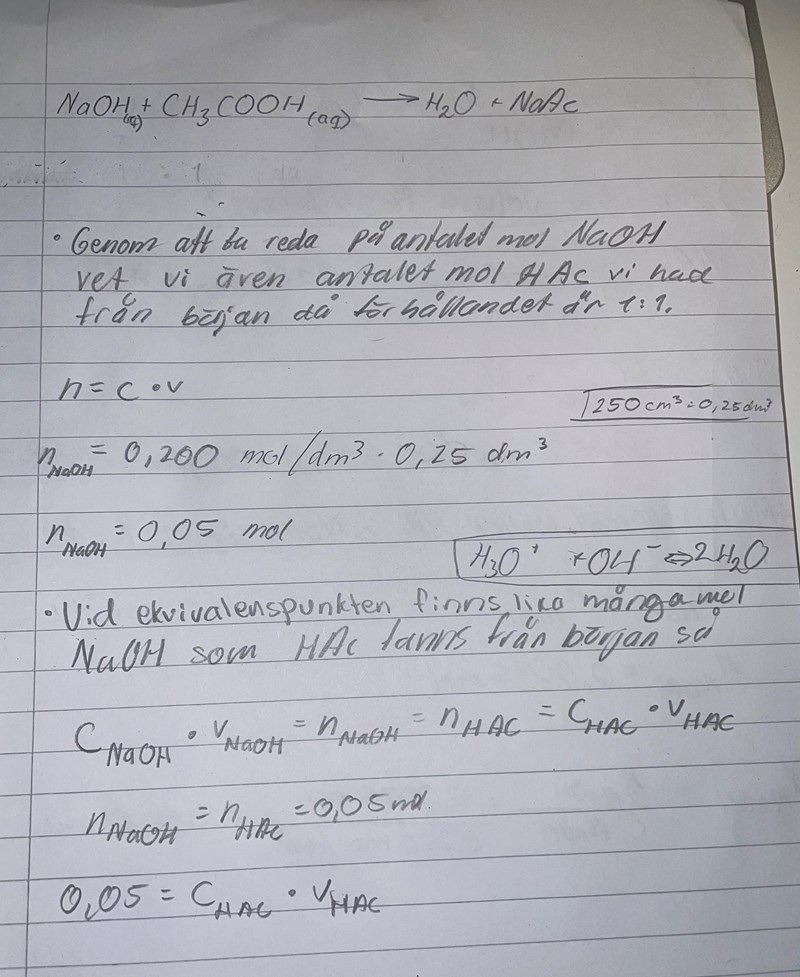 NaOH(aq) + CH₃COOH(aq) → H₂O + NaAc
• Genom att ta reda på antalet mol NaOH
vet vi även antalet mol HAc vi had
från början då förhållandet är 1:1.
n = c • v
250 cm³ = 0,25 dm³
n NaOH = 0,200 mol/dm³ · 0,25 dm³
n NaOH = 0,05 mol
H₃O⁺ + OH⁻ ⇔ 2H₂O
• Vid ekvivalenspunkten finns lika många mol
NaOH som HAc fanns från början så
C NaOH • V NaOH = n NaOH = n HAC = C HAC • V HAC
n NaOH = n HAc = 0,05 mol.
0,05 = C HAC • V HAC